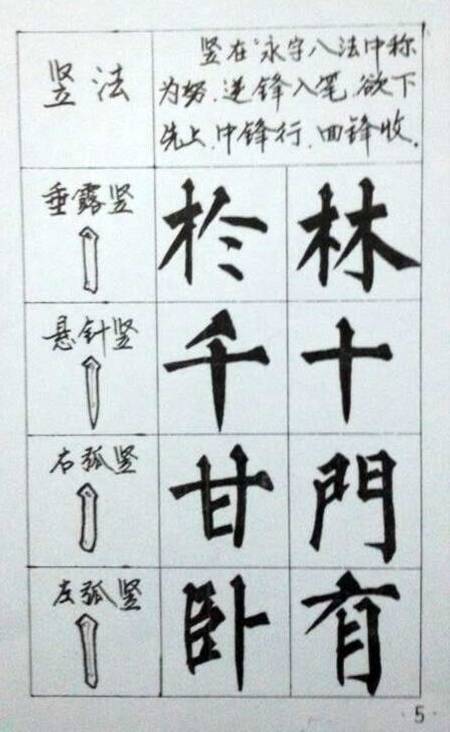 竖法
竖在“永字八法中称
为努.逆锋入笔.欲下
先上.中锋行.回锋收.
垂露竖
於 林
悬针竖
千 十
右弧竖
甘 門
左弧竖
卧 有
5